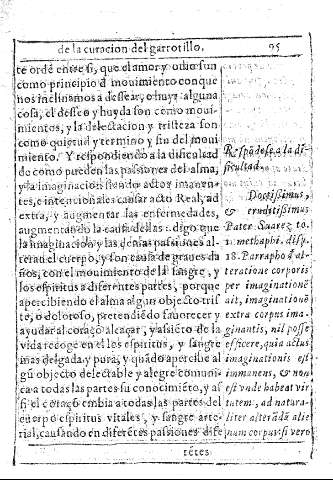 de la curacion del garrotillo. 95
te ordẽ entre si, que el amor y odio son
como principio d mouimiento con que
nos inclinamos a dessear, o huyr alguna
cosa, el desseo y huyda son como moui-
mientos, y la delectacion y tristeza son
como quietud y termino y fin del moui
miento. Y respondiendo a la dificultad
de como pueden las passiones del alma,
y la imaginacion siendo actos imanen-
tes, e intencionales causar acto Real, ad
extra, y augmentar las enfermedades,
augmentando la causa dellas: digo que
la imaginacion y las demas passiones al-
teran el cuerpo, y son causa de graues da
ños, con el mouimiento de la sangre, y
los espiritus a diferentes partes, porque
apercibiendo el alma algun objecto tris
te, o doloroso, pretendiẽdo fauorecer y
ayudar al coraçõ alcaçar, y assiẽto de la
vida recoge en el los espiritus, y sangre
mas delgada y pura, y quãdo apercibe al
gũ objecto delectable y alegre comuni
ca a todas las partes su conocimiẽto, y as
si el coraçõ embia a todas las partes del
cuerpo espiritus vitales, y sangre arte-
rial, causando en diferẽtes passiones dife
rẽtes
Respõdese a la di-
ficultad.
Doctissimus,
& eruditissimus
Pater Suarez to.
1. methaphi. disp.
18. Parrapho 4. al-
teratione corporis
per imaginationẽ
ait, imaginationẽ
extra corpus ima-
ginantis, nil posse
efficere, quia actus
imaginationis est
immanens, & non
est vnde habeat vir
tutem, ad natura-
liter alterãdã alie
num corpus: si vero